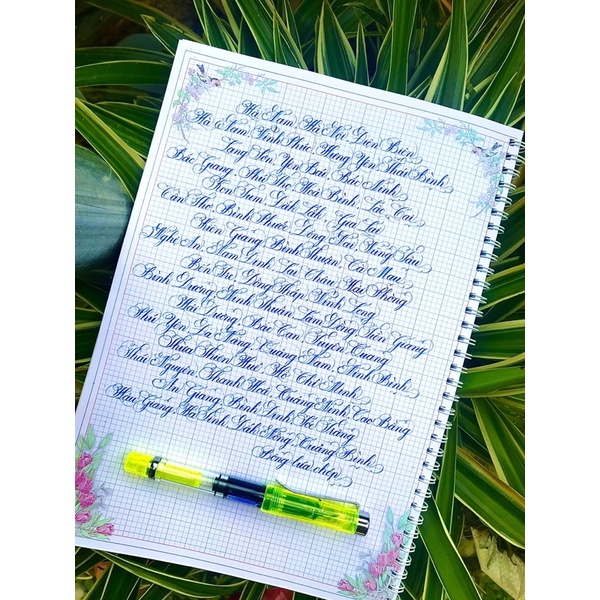 Hà Nam, Hà Nội, Điện Biên
Hà Nam, Vĩnh Phúc, Hưng Yên, Thái Bình
Lạng Sơn, Yên Bái, Bắc Ninh
Bắc Giang, Phú Thọ, Hoà Bình, Lào Cai
Kon Tum, Đắk Lắk, Gia Lai
Cần Thơ, Bình Phước, Long An, Vũng Tàu
Kiên Giang, Bình Thuận, Cà Mau
Nghệ An, Nam Định, Lai Châu, Hải Phòng
Bến Tre, Đồng Tháp, Vĩnh Long
Bình Dương, Ninh Thuận, Lâm Đồng, Tiền Giang
Hải Dương, Bắc Cạn, Tuyên Quang
Phú Yên, Đà Nẵng, Quảng Nam, Ninh Bình
Thừa Thiên Huế, Hồ Chí Minh
Thái Nguyên, Thanh Hoá, Quảng Ninh, Cao Bằng
An Giang, Bình Định, Sóc Trăng
Hậu Giang, Hà Tĩnh, Đắk Nông, Quảng Bình
Bông lúa chép